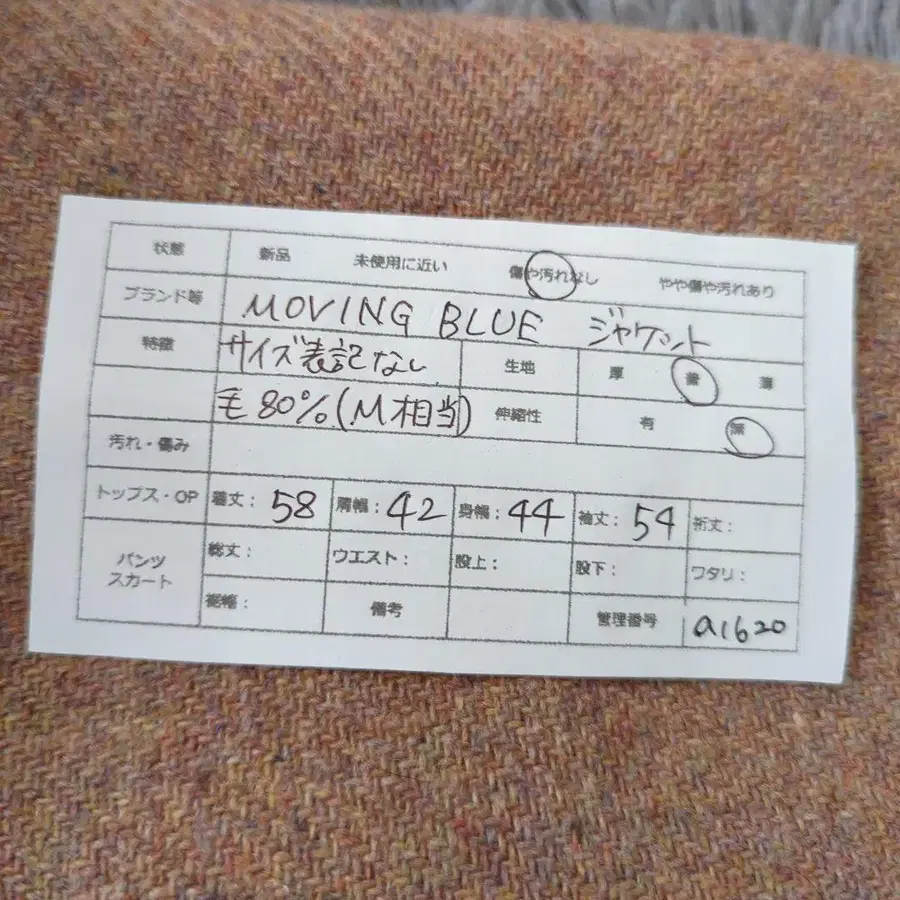 状態 新品 未使用に近い 傷や汚れなし やや傷や汚れあり
ブランド等 MOVING BLUE ジャケット
特徴 サイズ表記なし 生地 厚 普 薄
毛80%(M相当) 伸縮性 有 無
汚れ・傷み
トップス・OP 着丈: 58 肩幅: 42 身幅: 44 袖丈: 54 裄丈:
パンツ 総丈: ウエスト: 股上: 股下: ワタリ:
スカート
裾幅: 備考 管理番号 a1620